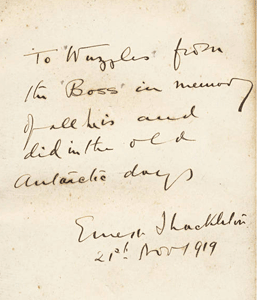 To Wuzzles from
the "Boss" in memory
of all his and
did in the old
Antarctic days
Ernest Shackleton
21st Nov 1919